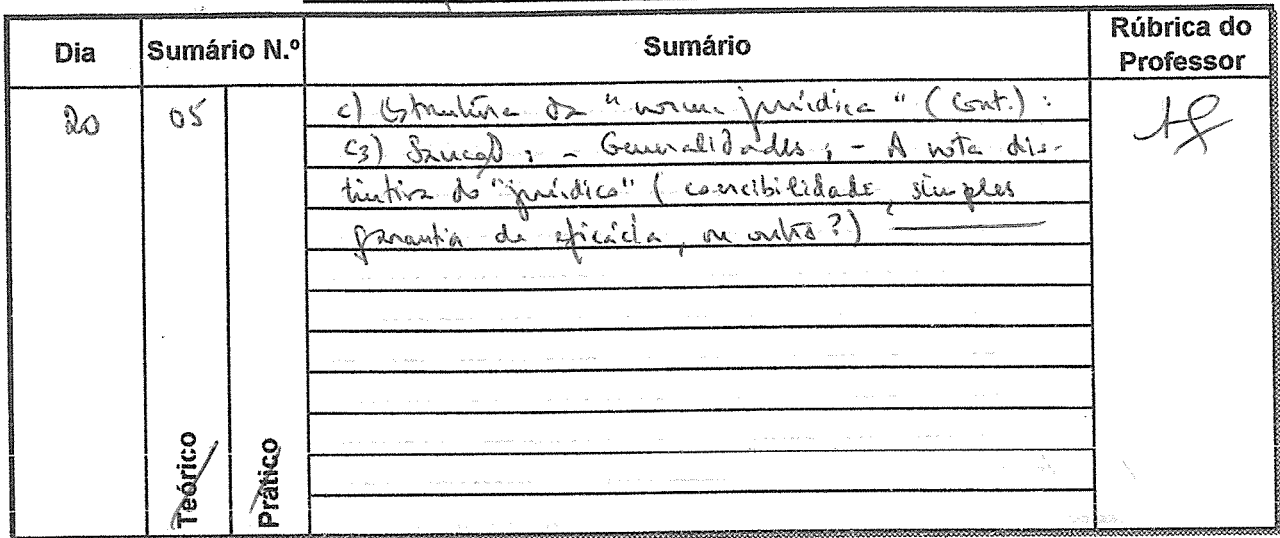 Dia Sumário N.º Sumário Rúbrica do Professor
20 05 c) Estrutura da "norma jurídica" (Cont.) :
c3) Sanção ; - Generalidades ; - A nota dis-
tintiva do "jurídico" (coercibilidade, simples
garantia de eficácia, ou outro?)
Teórico
Prático